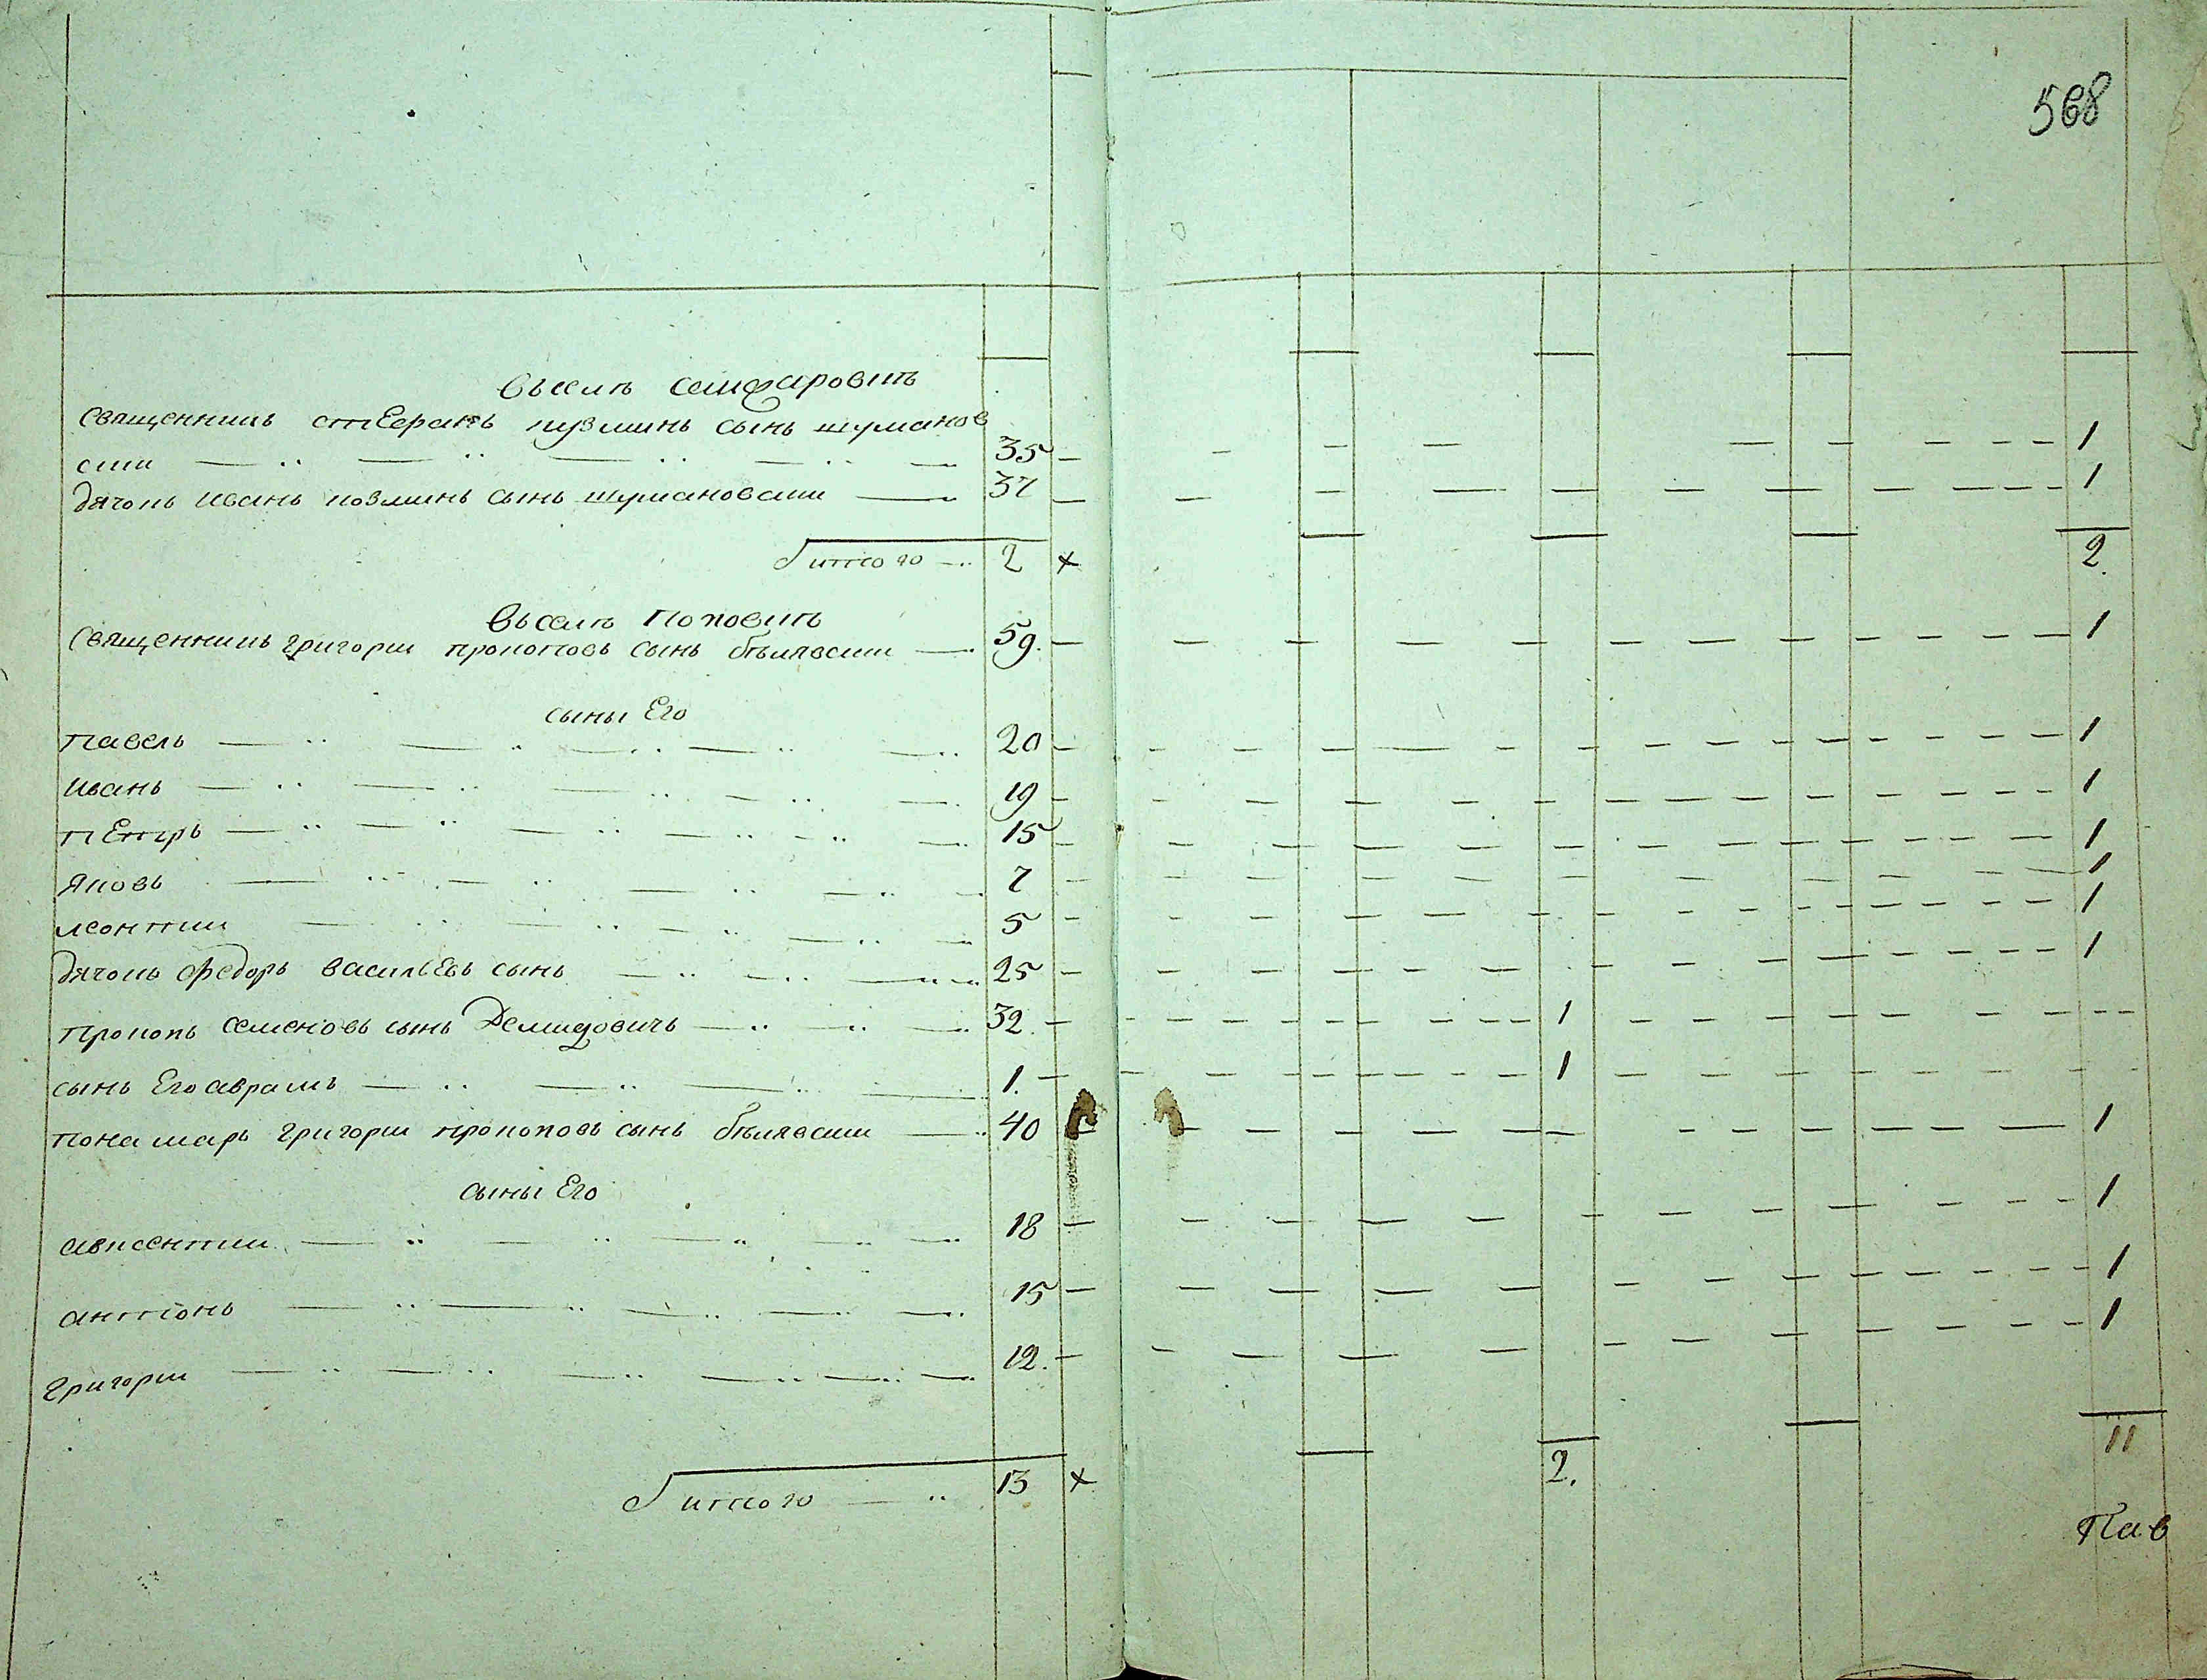 568
въселѣ семаровцѣ
священникъ стеѳанъ кузминъ сынъ шуманов
ски 35 1
дячокъ иванъ козминъ сынъ шумановски 37 1
итого 2 × 2.
въселѣ поповцѣ
священникъ григории прокоповъ сынъ бѣлявски 59. 1
сыны Его
павелъ 20 1
иванъ 19 1
пЕтръ 15 1
яковъ 7 1
леонтии 5 1
дячокъ федоръ васильЕвъ сынъ 25 1
прокопъ семеновъ сынъ Демидовичъ 32. 1
сынъ Его аврамъ 1. 1
понамаръ григории прокоповъ сынъ бѣлявски 40 1
сыны Его
авксентии 18 1
антонъ 15 1
григории 12. 1
итого 13 × 2. 11
Пав